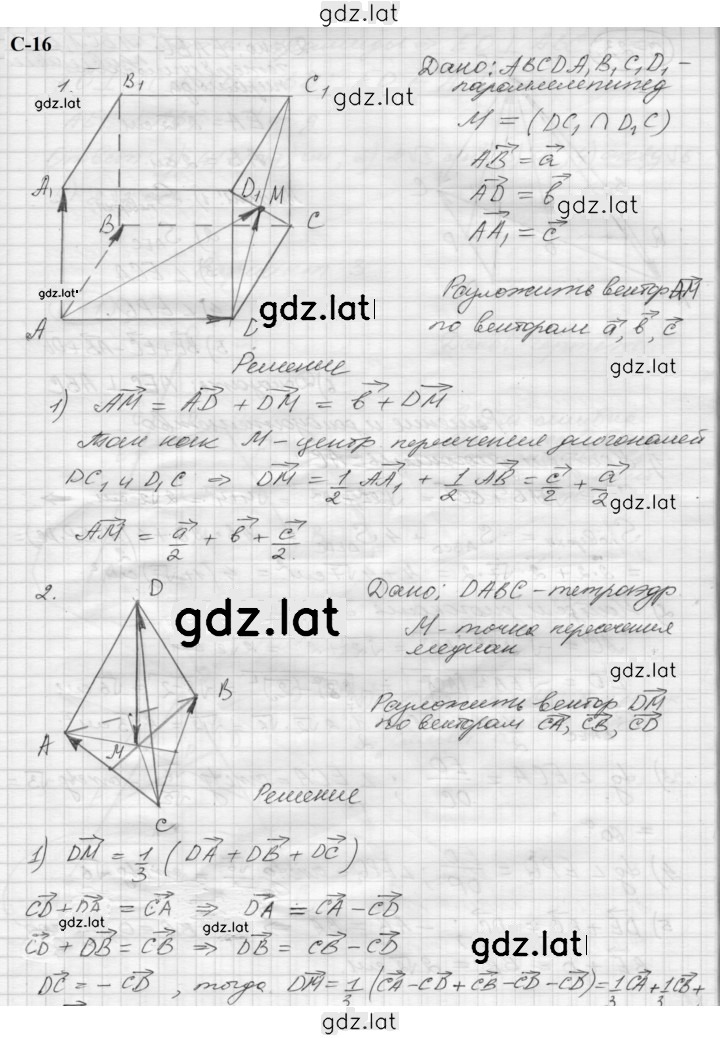 gdz.lat
С-16
1.
B₁
C₁
gdz.lat
A₁
D₁
M
B
C
gdz.lat
A
D
gdz.lat
Дано: ABCDA₁B₁C₁D₁ -
параллелепипед
gdz.lat
M = (DC₁ ∩ D₁C)
AB⃗ = a⃗
AD⃗ = b⃗
gdz.lat
AA₁⃗ = c⃗
Разложить вектор AM⃗
по векторам a⃗, b⃗, c⃗
gdz.lat
Решение
1) AM⃗ = AD⃗ + DM⃗ = b⃗ + DM⃗
Так как M - центр пересечения диагоналей
DC₁ и D₁C ⇒ DM⃗ = 1/2 AA₁⃗ + 1/2 AB⃗ = c⃗/2 + a⃗/2
gdz.lat
AM⃗ = a⃗/2 + b⃗ + c⃗/2
2.
D
gdz.lat
B
A
M
C
Дано: DABC - тетраэдр
M - точка пересечения
медиан
gdz.lat
Разложить вектор DM⃗
по векторам CA⃗, CB⃗, CD⃗
Решение
1) DM⃗ = 1/3 (DA⃗ + DB⃗ + DC⃗)
CD⃗ + DA⃗ = CA⃗ ⇒ DA⃗ = CA⃗ - CD⃗
gdz.lat
gdz.lat
CD⃗ + DB⃗ = CB⃗ ⇒ DB⃗ = CB⃗ - CD⃗
gdz.lat
DC⃗ = - CD⃗, тогда DM⃗ = 1/3 (CA⃗ - CD⃗ + CB⃗ - CD⃗ - CD⃗) = 1/3 CA⃗ + 1/3 CB⃗ +
gdz.lat